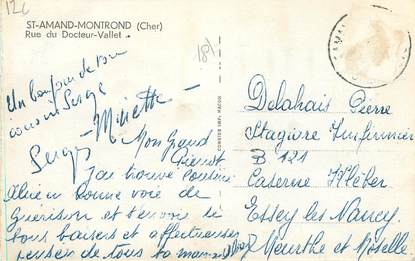 12c
ST-AMAND-MONTROND (Cher)
Rue du Docteur-Vallet
181
Un bonjour de ton
cousin Serge
Serge - Miette -
Mon Grand
Pierrot
J'ai trouvé
bonne voie de
Guérison et t'envoie ici
bons baisers et affectueuses
pensées de tous ta maman
COMBIER IMP. MACON
Delahais Pierre
Stagiaire Infirmier
B 121
Caserne Kléber
Essey les Nancy
Meurthe et Moselle